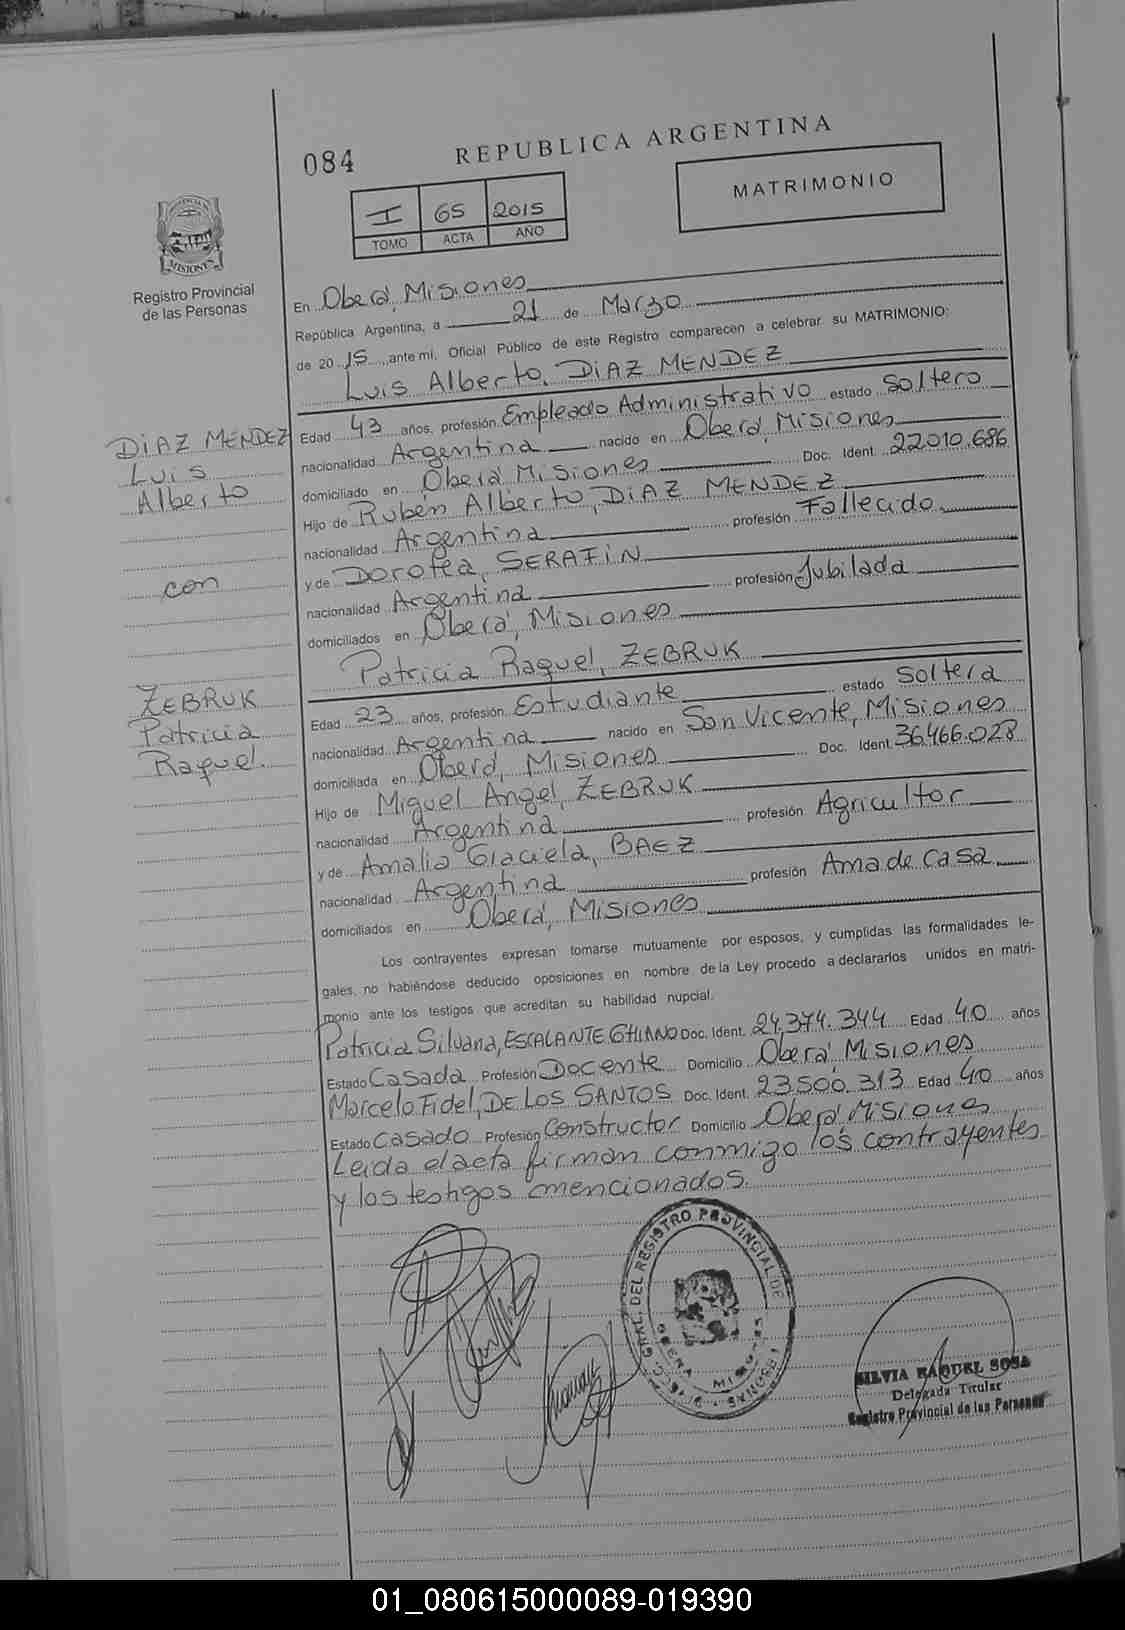 084
REPUBLICA ARGENTINA
MATRIMONIO
I 65 2015
TOMO ACTA AÑO
MISIONES
Registro Provincial
de las Personas
En Oberá, Misiones
República Argentina, a 21 de Marzo
de 2015, ante mi, Oficial Público de este Registro comparecen a celebrar su MATRIMONIO:
Luis Alberto, DiAZ MENDEZ
Edad 43 años, profesión Empleado Administrativo estado Soltero
nacionalidad Argentina nacido en Oberá, Misiones
domiciliado en Oberá Misiones Doc. Ident. 22.010.686
Hijo de Rubén Alberto, DiAZ MENDEZ
nacionalidad Argentina profesión Fallecido
y de Dorotea, SERAFiN
nacionalidad Argentina profesión Jubilada
domiciliados en Oberá, Misiones
Patricia Raquel, ZEBRUK
Edad 23 años, profesión Estudiante estado Soltera
nacionalidad Argentina nacido en San Vicente, Misiones
domiciliada en Oberá, Misiones Doc. Ident. 36.466.028
Hijo de Miguel Angel, ZEBRUK
nacionalidad Argentina profesión Agricultor
y de Amalia Graciela, BAEZ
nacionalidad Argentina profesión Ama de Casa
domiciliados en Oberá, Misiones
DiAZ MENDEZ
Luis
Alberto
con
ZEBRUK
Patricia
Raquel.
Los contrayentes expresan tomarse mutuamente por esposos, y cumplidas las formalidades le-
gales, no habiéndose deducido oposiciones en nombre de la Ley procedo a declararlos unidos en matri-
monio ante los testigos que acreditan su habilidad nupcial.
Patricia Silvana, ESCALANTE GHIANO Doc. Ident. 24.374.344 Edad 40 años
Estado Casada Profesión Docente Domicilio Oberá Misiones
Marcelo Fidel, DE LOS SANTOS Doc. Ident. 23.500.313 Edad 40 años
Estado Casado Profesión Constructor Domicilio Oberá, Misiones
Leida el acta firman conmigo los contrayentes
y los testigos mencionados.
GRAL. DEL REGISTRO PROVINCIAL DE
SILVIA RAQUEL SOSA
Delegada Titular
Registro Provincial de las Personas
01_080615000089-019390